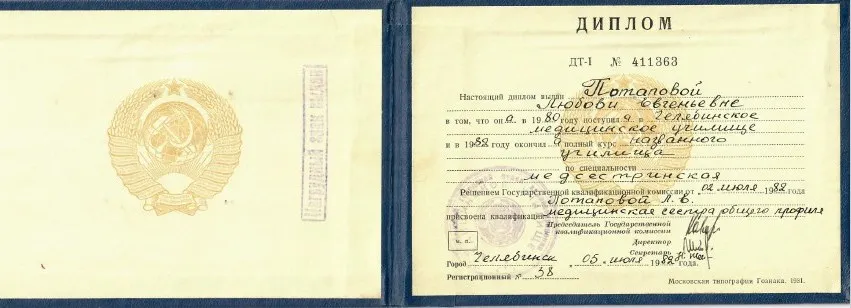 Нагрудный знак выдан
ДИПЛОМ
ДТ-I № 411363
Настоящий диплом выдан Потаповой
Любови Евгеньевне
в том, что он а в 1980 году поступил а в Челябинское
медицинское училище
и в 1982 году окончил а полный курс названного
училища
по специальности
медсестринская
Решением Государственной квалификационной комиссии от 02 июля 1982 года
Потаповой Л. Е.
присвоена квалификация медицинская сестра общего профиля
Председатель Государственной
квалификационной комиссии
Директор
Секретарь
м. п.
Город Челябинск 05 июля 1982 года.
Регистрационный № 38
Московская типография Гознака. 1981.